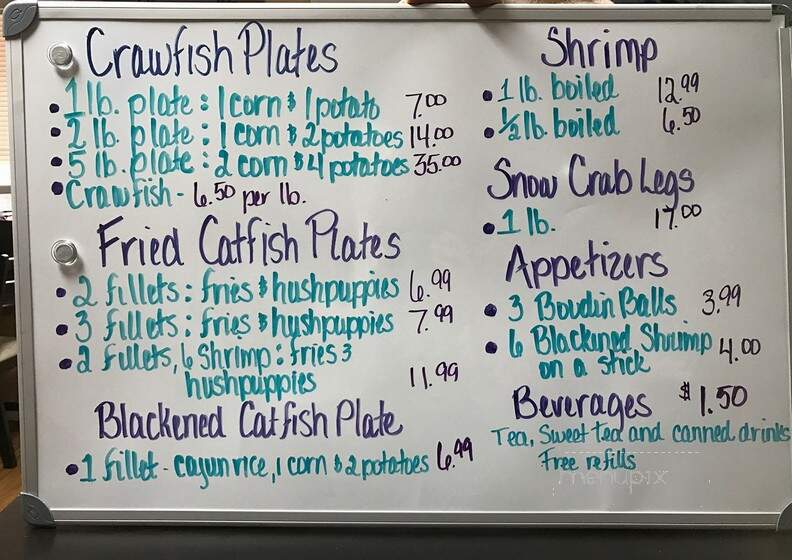 Crawfish Plates
• 1 lb. plate : 1 corn & 1 potato 7.00
• 2 lb. plate : 1 corn & 2 potatoes 14.00
• 5 lb. plate : 2 corn & 4 potatoes 35.00
• Crawfish - 6.50 per lb.
Fried Catfish Plates
• 2 fillets : fries & hushpuppies 6.99
• 3 fillets : fries & hushpuppies 7.99
• 2 fillets, 6 Shrimp : fries 3
hushpuppies 11.99
Blackened Catfish Plate
• 1 fillet - cajun rice, 1 corn & 2 potatoes 6.99
Shrimp
• 1 lb. boiled 12.99
• 1/2 lb. boiled 6.50
Snow Crab Legs
• 1 lb. 17.00
Appetizers
• 3 Boudin Balls 3.99
• 6 Blackined Shrimp 4.00
on a stick
Beverages $1.50
Tea, Sweet tea and canned drinks
Free refills
menupix